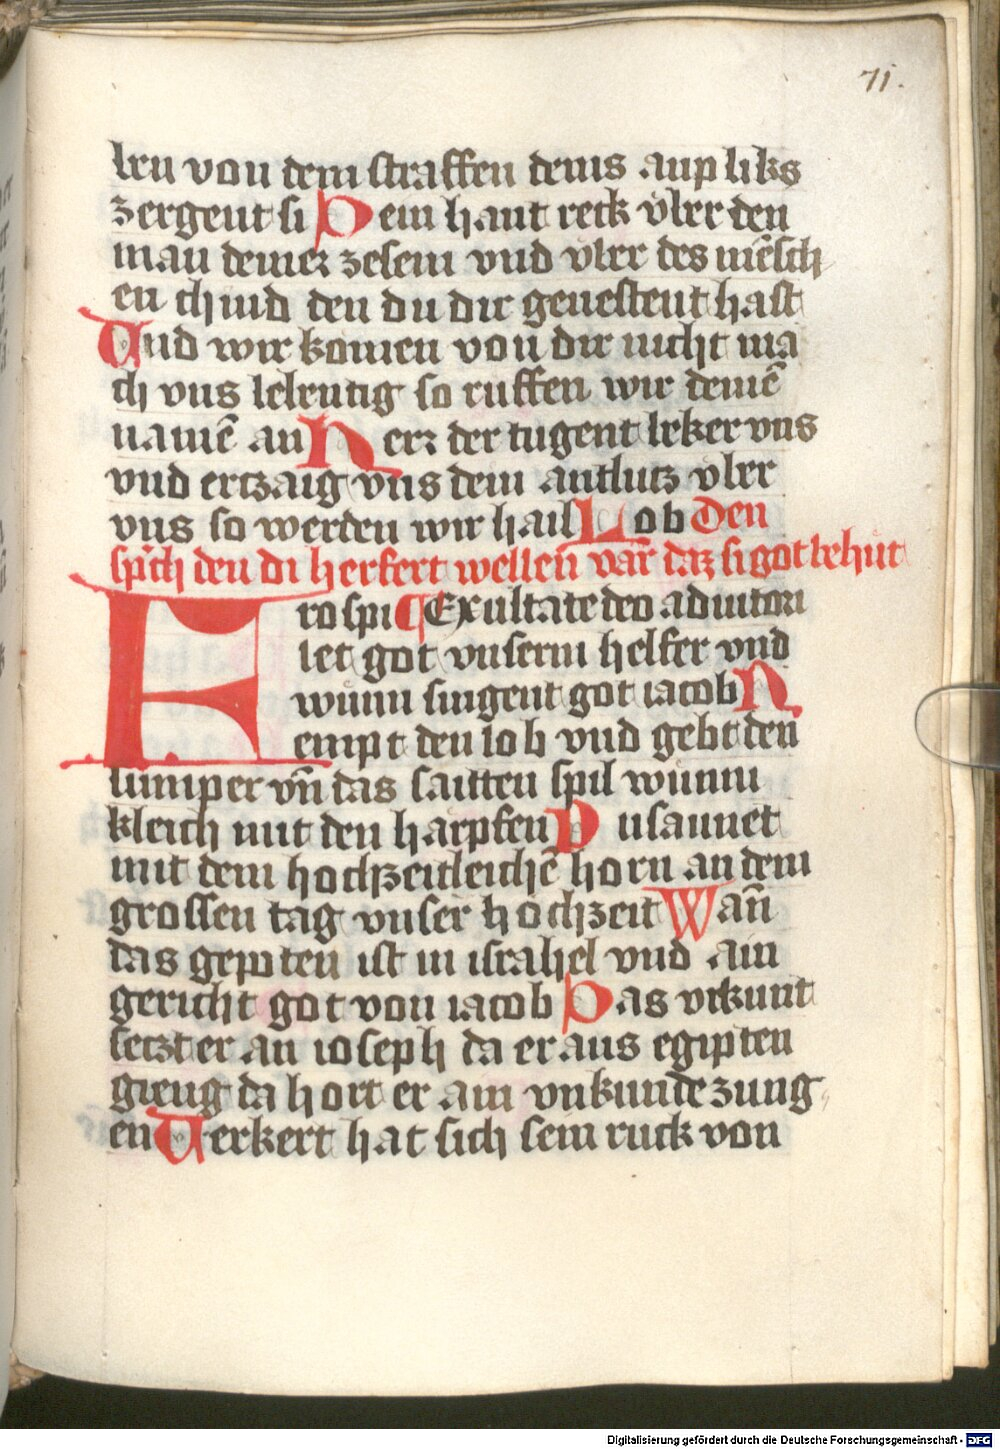 71.
ben von dem straffen deins anpliks
zergent si Dein hant reck vͤber den
man deiner zesem vnd vͤber des mēsch
en chind den du dir geuestent hast
Vnd wir komen von dir nicht ma
ch vns lebentig so ruffen wir deinē
namē an Herr der tugent beker vns
vnd ertzaig vns dein antlutz vber
vns so werden wir hail Lob Den
sp̄ch den di herfert wellen var daz si got behut
Erospi ¶ Exultate deo adiutori
iet got vnserm helfer vnd
wunn singent got iacob N
empt den lob vnd gebt den
tumper vn̄ das saitten spil wunni
kleich mit den harpfen Pusaunet
mit dem hochzeitleichē horn an dem
grossen tag vnser hochzeit Wan̄
das gepoten ist in israhel vnd ain
gericht got von iacob Das vrkunt
setzt er an ioseph da er aus egipten
gieng da hort er ain vnkunde zung
en Verkert hat sich sein ruck von
Digitalisierung gefördert durch die Deutsche Forschungsgemeinschaft - DFG